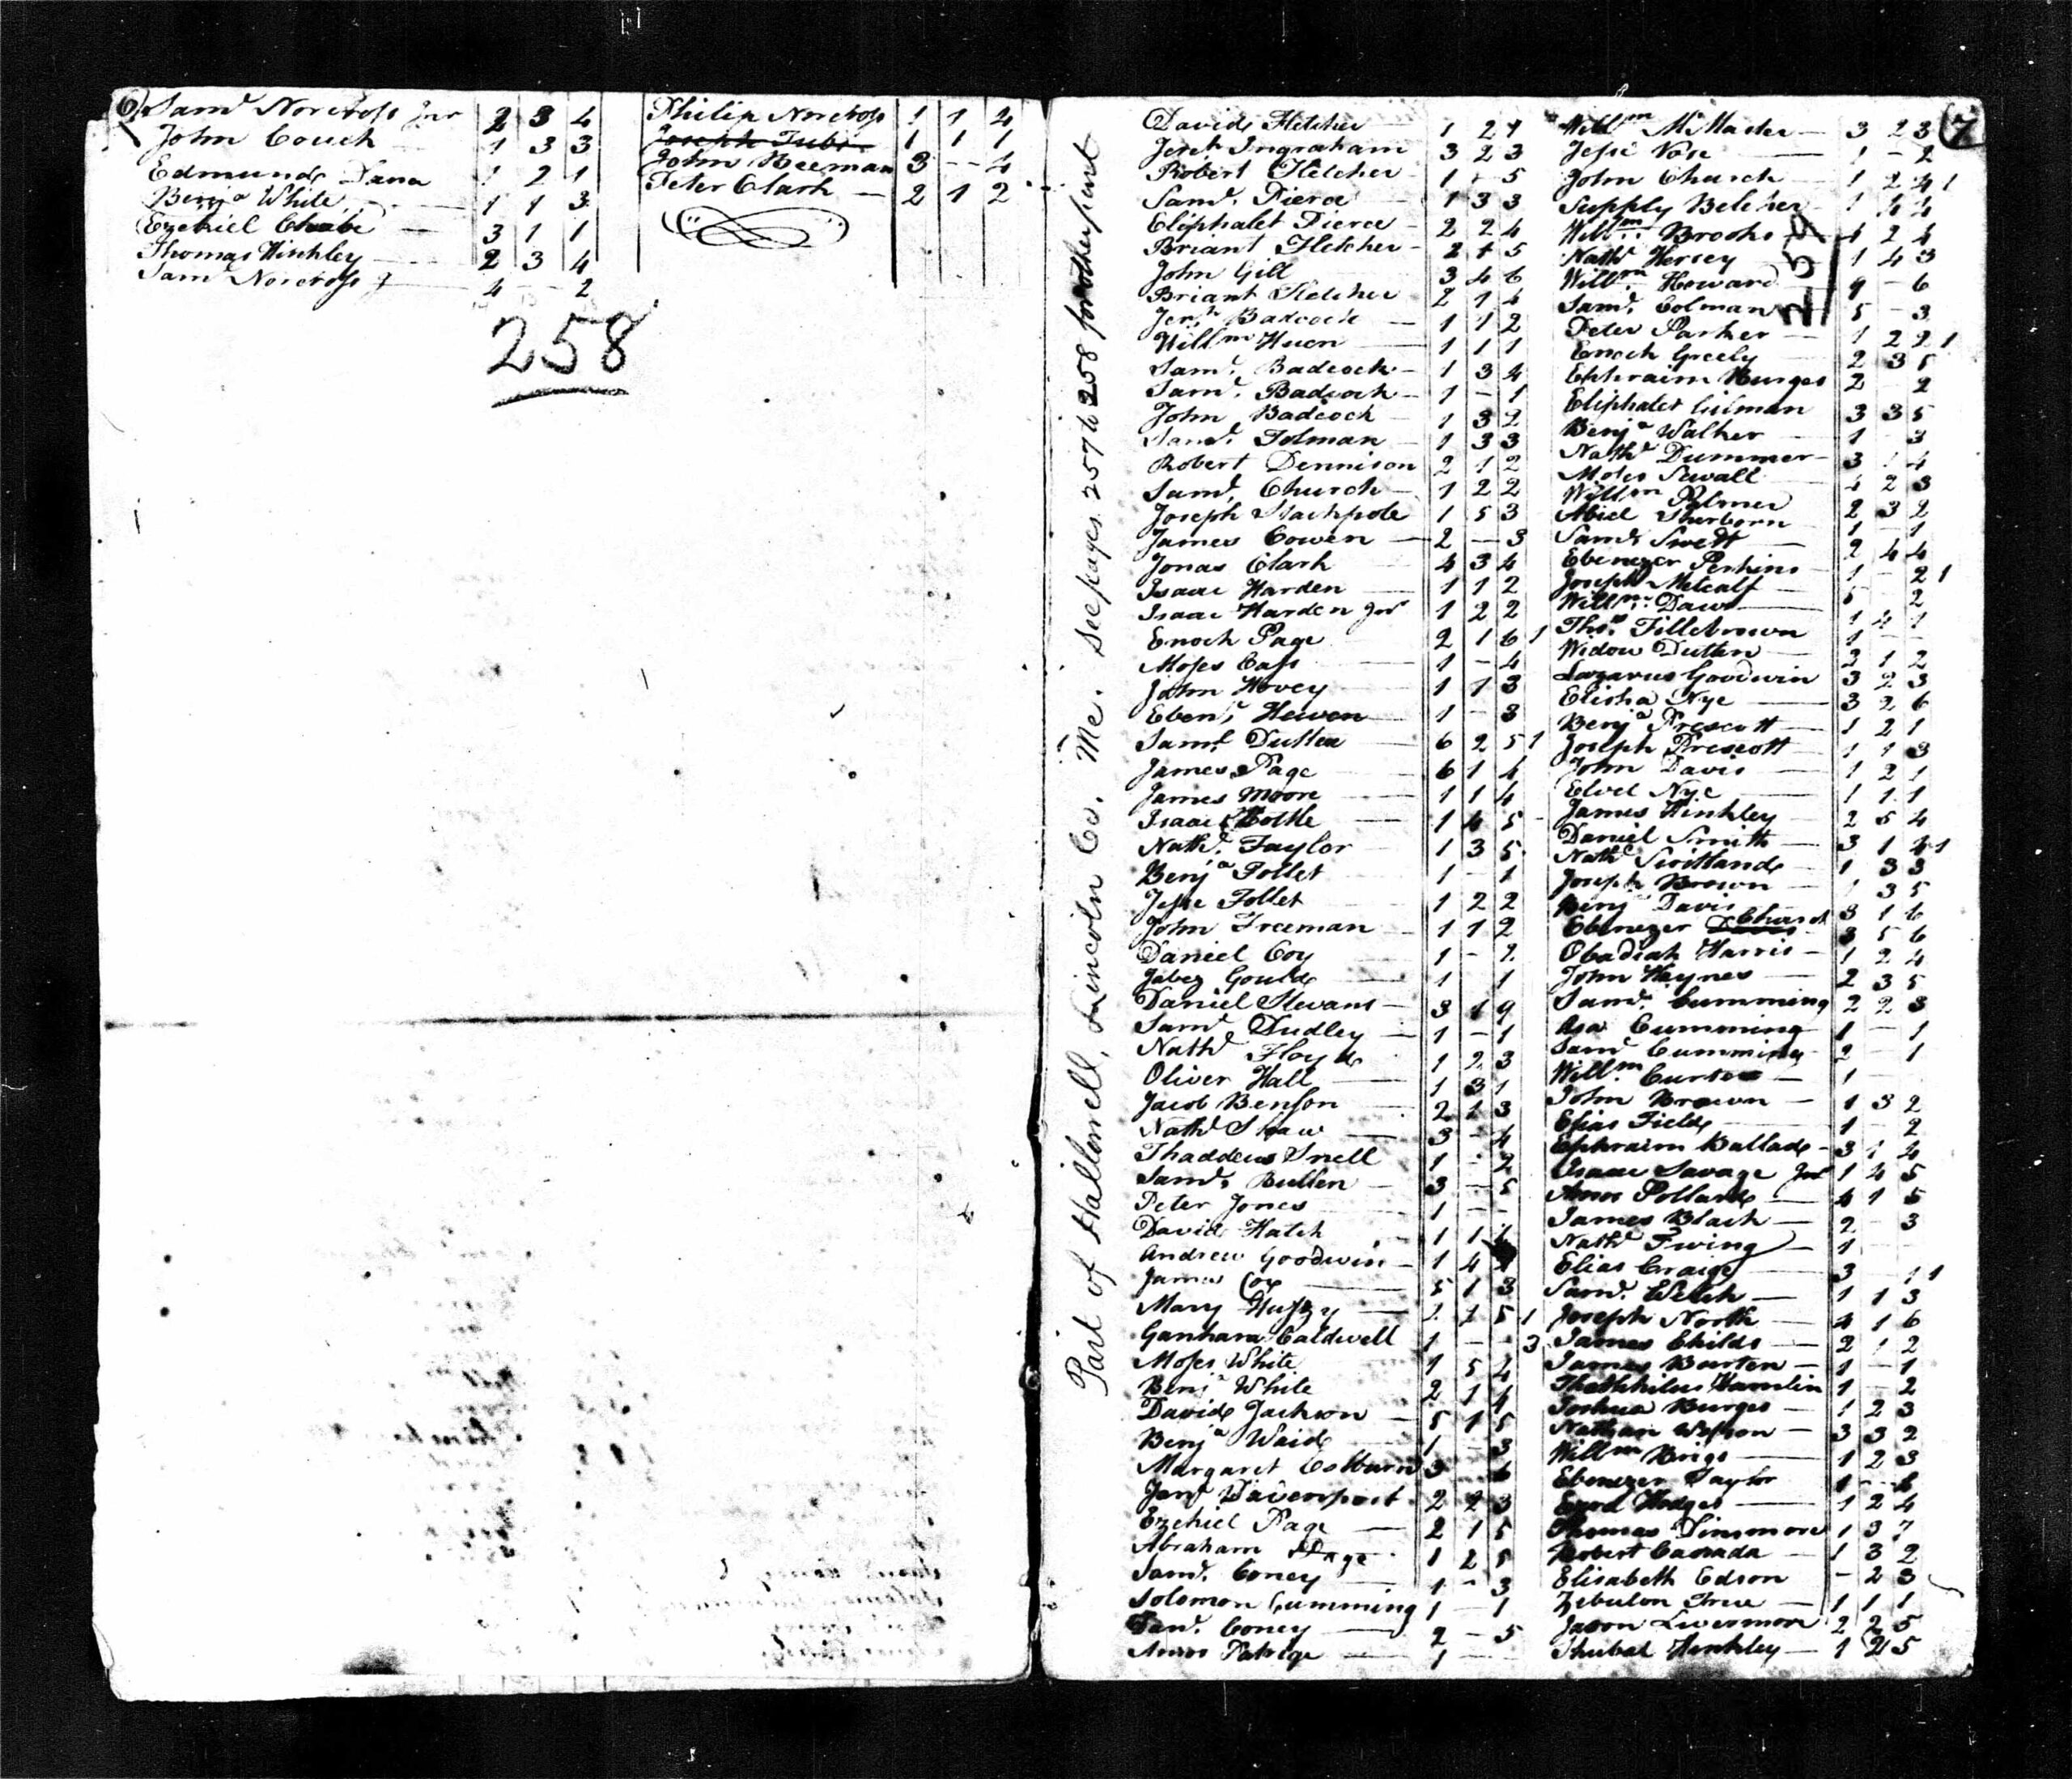 6
Saml Norcross Jnr 2 3 4
John Couch 1 3 3
Edmund Dana 1 2 1
Benja White 1 1 3
Ezekiel Chube 3 1 1
Thomas Hinkley 2 3 4
Saml Norcross 4 - 2
Philip Norcross 1 1 2
Joseph Tubs 1 1 1
John Beeman 3 - - 4
Peter Clark 2 1 2
258
Part of Hallowell, Lincoln Co. Me. See pages 257 to 258 for other part
David Fletcher 1 2 1
Jereh Ingraham 3 2 3
Robert Fletcher 1 + 5
Saml. Pierce 1 3 3
Eliphalet Pierce 2 2 4
Briant Fletcher 2 + 5
John Gill 3 4 6
Briant Fletcher 2 1 4
Jerh Badcock 1 1 2
Willm Huen 1 1 1
Saml. Badcock 1 3 4
Saml. Badcock 1 - 1
John Badcock 1 3 2
Saml. Tolman 1 3 3
Robert Dennison 2 1 2
Saml. Church 1 2 2
Joseph Stackpole 1 5 3
James Cowen 2 - 3
Jonas Clark 4 3 4
Isaac Harden 1 1 2
Isaac Harden Jnr 1 2 2
Enoch Page 2 1 6 1
Moses Cass 1 - 4
John Hovey 1 1 3
Ebenr Hewen 1 - 3
Saml Dutten 6 2 5 1
James Page 6 1 4
James Moore 1 1 4
Isaac Cottle 1 4 5
Nathl. Taylor 1 3 5
Benja Follet 1 - 1
Jesse Follet 1 2 2
John Freeman 1 1 2
Daniel Coy 1 - 2
Jabez Gould 1 1
Daniel Stevans 3 1 9
Saml Dudley 1 - 1
Nathl Floyd 1 2 3
Oliver Hall 1 3 1
Jacob Benson 2 1 3
Nathl Shaw 3 - 4
Thaddeus Snell 1 - 2
Saml. Bullen 3 - 5
Peter Jones 1 - -
David Hatch 1 1
Andrew Goodwin 1 4
James Cox 5 1 3
Mary Hussy 1 5 1
Ganhara Caldwell 1 - - 3
Moses White 1 5 2
Benja White 2 1 4
David Jackson 5 1 5
Benja Waid 1 - 3
Margaret Colburn 3 - 6
Jerh Davenport 2 2 3
Ezekiel Page 2 1 5
Abraham Page 1 2 5
Saml. Coney 1 - 3
Solomon Cumming 1 - 1
Saml. Coney 2 - 5
Amos Patrige 1 - -
7
259
Willm McMaster 3 2 3
Jesse Vose 1 - 2
John Church 1 2 4 1
Supply Belcher 1 4 4
Willm Brooks 1 2 4
Nathl Hersey 1 4 3
Willm Howard 9 - 6
Saml. Colman 5 - 3
Peter Parker 1 2 2 1
Enoch Greely 2 3 5
Ephraim Burges 2 - 2
Eliphalet Gilman 3 3 5
Benja Walker 1 - 3
Nathl Dummer 3 1 4
Moses Sewall 1 2 3
Willm Palmer 2 3 2
Abiel Sherborn 1 - 1
Saml Swett 2 4 4
Ebenezer Perkins 1 - 2 1
Joseph Metcalf 2
Willm Daw 1 4 1
Thos. Fillebrown 1 - -
Widow Dutten 2 1 2
Lazarus Goodwin 3 2 3
Elisha Nye 3 2 6
Benja Prescott 1 2 1
Joseph Prescott 1 1 3
John Davis 1 2 1
Elvel Nye 1 1 1
James Hinkley 2 5 4
Daniel Smith 3 1 4 1
Nathl Swittland 1 3 3
Joseph Brown 1 3 5
Benj Davis 3 1 6
Ebenezer Davis Church 3 5 6
Obadiah Harris 1 2 4
John Haynes 2 3 5
Saml. Cumming 2 2 3
Asa Cumming 1 - 1
Saml Cumming 2 - 1
Willm. Curtes 1
John Brown 1 3 2
Elias Field 1 - 2
Ephraim Ballard 3 1 4
Isaac Savage Jnr 1 4 5
Amos Pollard 4 1 5
James Black 2 - 3
Nathl Twing 1
Elias Craige 3 1 1
Saml. Welch 1 1 3
Joseph North 4 1 6
James Childs 2 1 2
James Burten 1 - 1
Theophilus Hamlin 1 - 2
Joshua Burges 1 2 3
Nathan Weston 3 3 2
Willm Brigs 1 2 3
Ebenezer Taylor 1 - 6
Ezra Hodges 1 2 4
Thomas Dinsmore 1 3 7
Robert Cassada 1 3 2
Elisabeth Edson - 2 3
Zebulon True 1 1 1
Jason Livermore 2 2 5
Shubal Hinkley 1 2 5